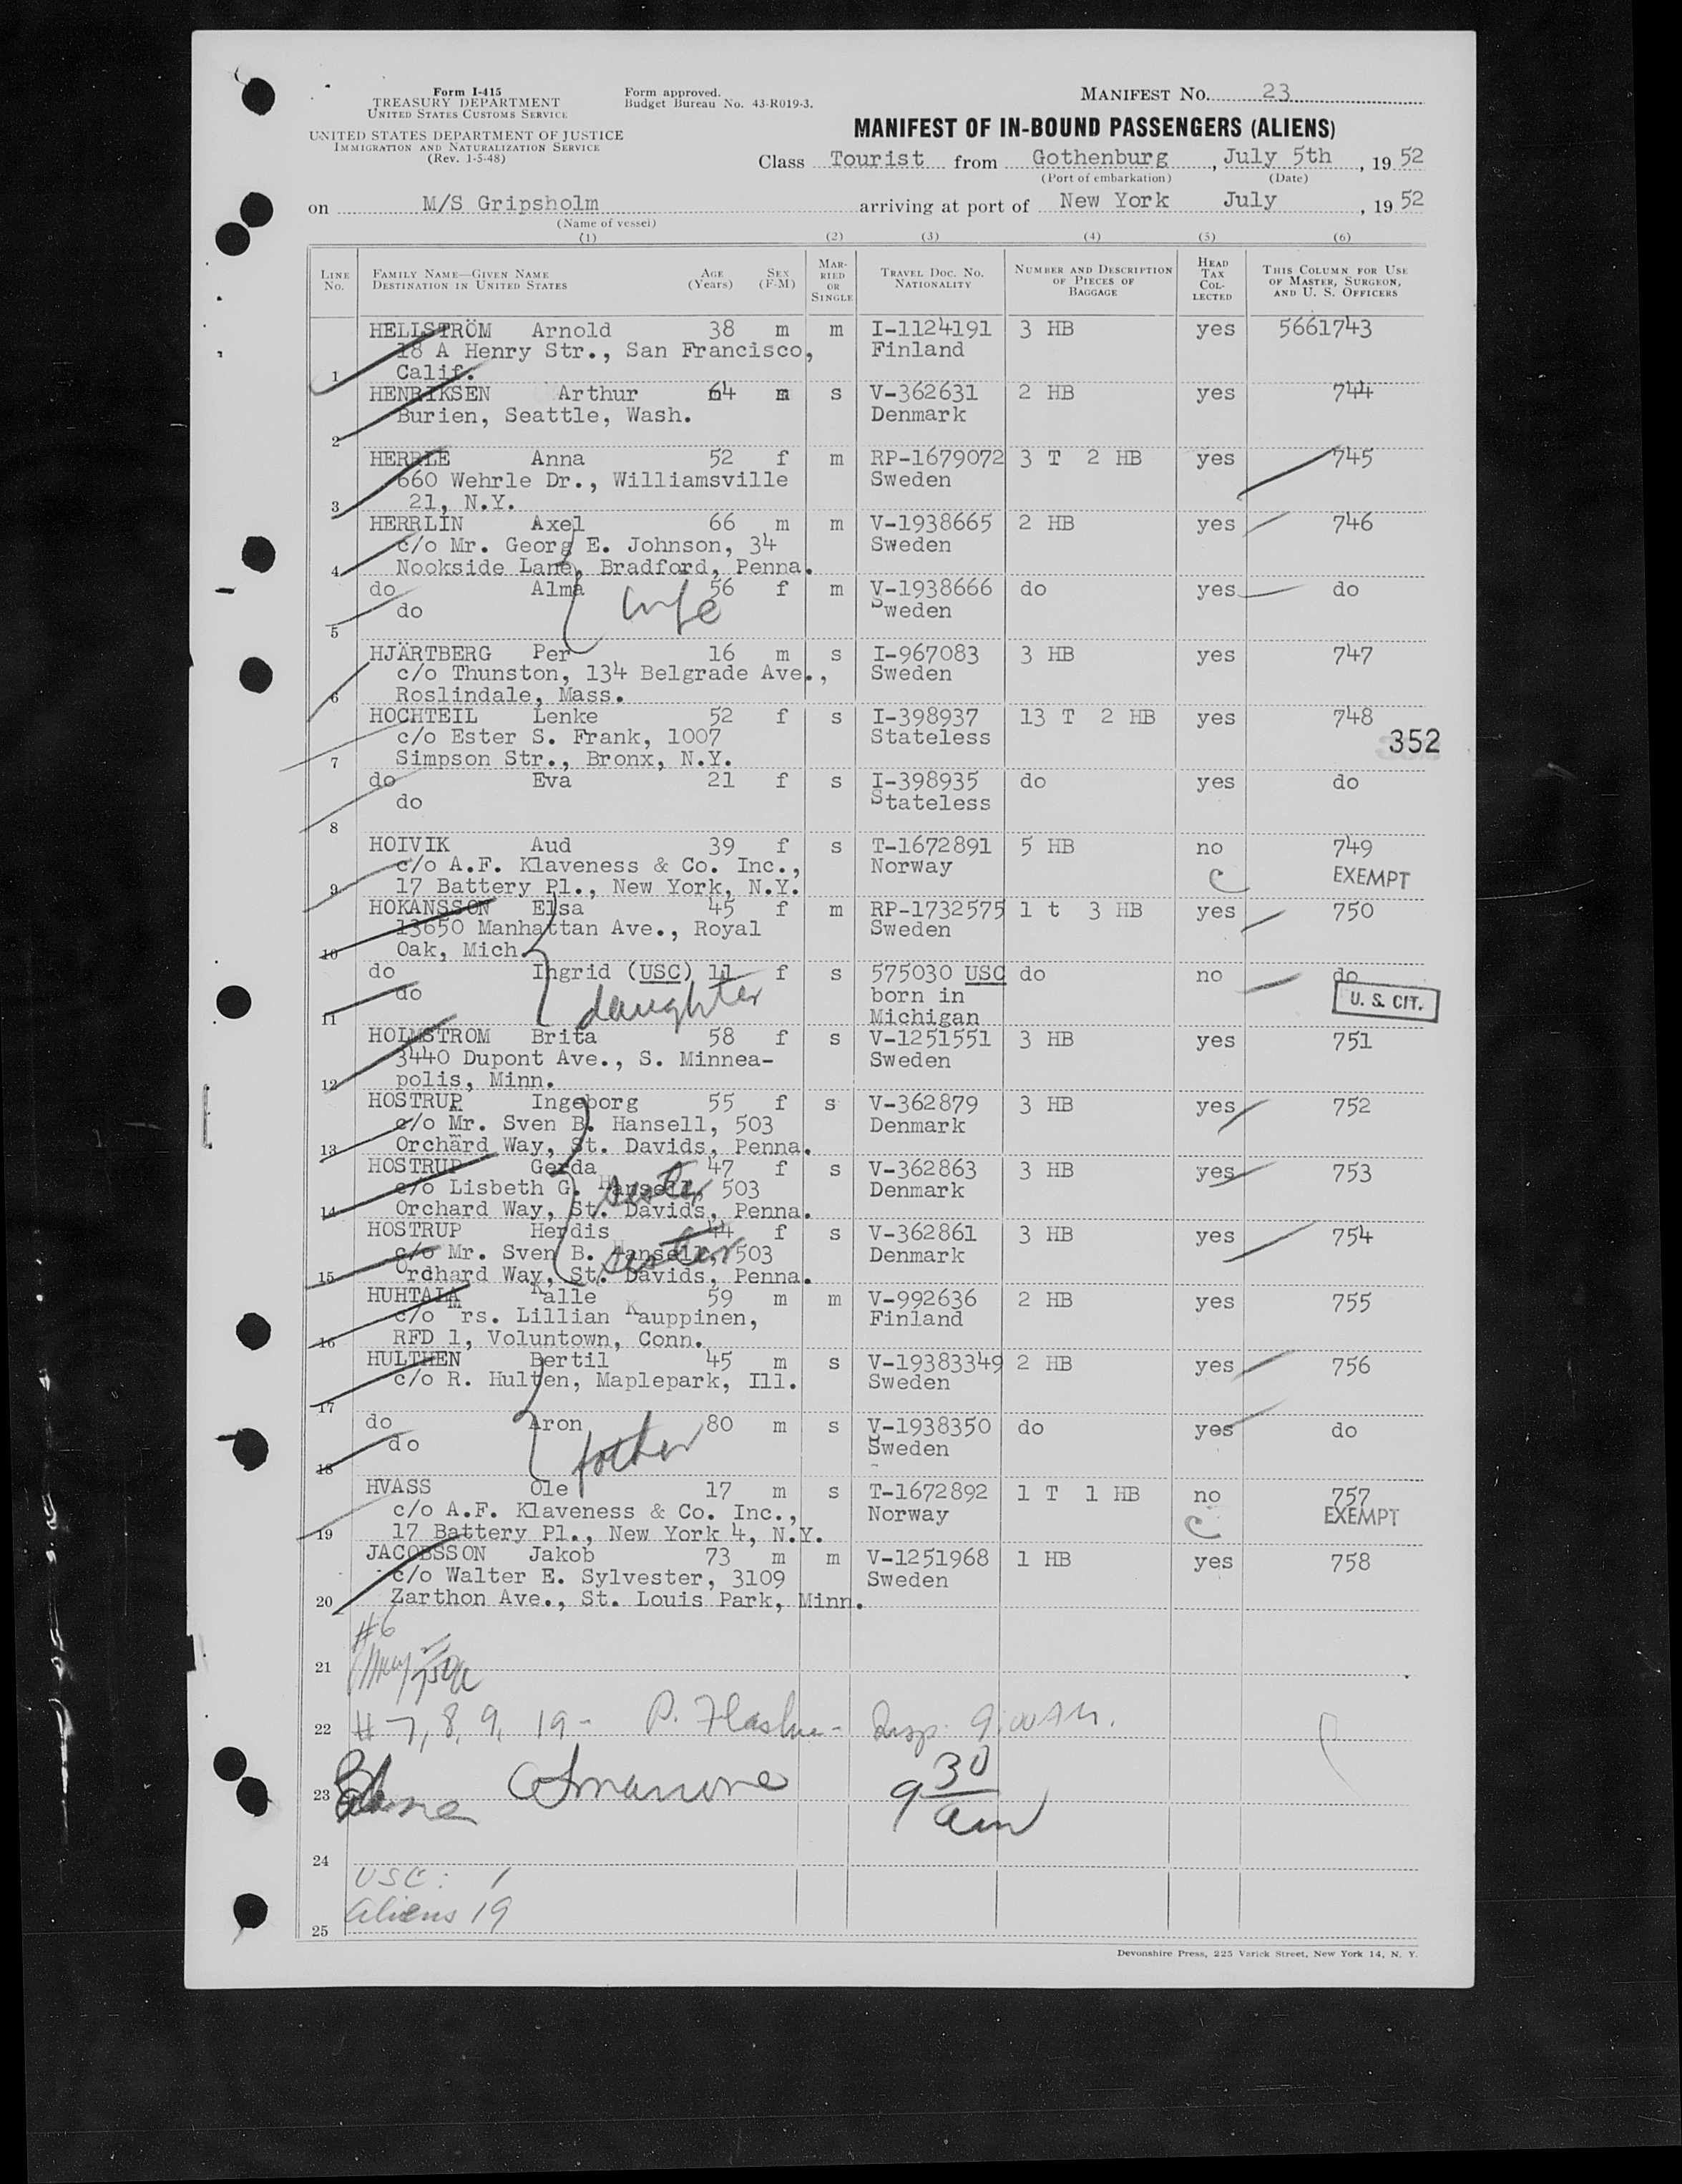 Form I-415
TREASURY DEPARTMENT
UNITED STATES CUSTOMS SERVICE
UNITED STATES DEPARTMENT OF JUSTICE
IMMIGRATION AND NATURALIZATION SERVICE
(Rev. 1-5-48)
Form approved.
Budget Bureau No. 43-R019-3.
MANIFEST NO. 23
MANIFEST OF IN-BOUND PASSENGERS (ALIENS)
Class Tourist from Gothenburg, July 5th, 19 52
(Port of embarkation) (Date)
on M/S Gripsholm arriving at port of New York July, 19 52
(Name of vessel)
(1) (2) (3) (4) (5) (6)
LINE No. FAMILY NAME—GIVEN NAME DESTINATION IN UNITED STATES AGE (Years) SEX (F-M) MARRIED OR SINGLE TRAVEL DOC. NO. NATIONALITY NUMBER AND DESCRIPTION OF PIECES OF BAGGAGE HEAD TAX COLLECTED THIS COLUMN FOR USE OF MASTER, SURGEON, AND U. S. OFFICERS
HELLSTRÖM Arnold 38 m m I-1124191 3 HB yes 5661743
18 A Henry Str., San Francisco, Finland
1 Calif.
HENRIKSEN Arthur 64 m s V-362631 2 HB yes 744
Burien, Seattle, Wash. Denmark
2
HERRLE Anna 52 f m RP-1679072 3 T 2 HB yes 745
660 Wehrle Dr., Williamsville Sweden
3 21, N.Y.
HERRLIN Axel 66 m m V-1938665 2 HB yes 746
c/o Mr. Georg E. Johnson, 34 Sweden
4 Nookside Lane, Bradford, Penna.
do Alma 56 f m V-1938666 do yes do
do wife Sweden
5
HJÄRTBERG Per 16 m s I-967083 3 HB yes 747
c/o Thunston, 134 Belgrade Ave., Sweden
6 Roslindale, Mass.
HOCHTEIL Lenke 52 f s I-398937 13 T 2 HB yes 748
c/o Ester S. Frank, 1007 Stateless 352
7 Simpson Str., Bronx, N.Y.
do Eva 21 f s I-398935 do yes do
do Stateless
8
HOIVIK Aud 39 f s T-1672891 5 HB no 749
c/o A.F. Klaveness & Co. Inc., Norway c EXEMPT
9 17 Battery Pl., New York, N.Y.
HOKANSSON Elsa 45 f m RP-1732575 1 t 3 HB yes 750
13650 Manhattan Ave., Royal Sweden
10 Oak, Mich.
do Ingrid (USC) 11 f s 575030 USC do no do
do daughter born in U. S. CIT.
11 Michigan
HOLMSTROM Brita 58 f s V-1251551 3 HB yes 751
3440 Dupont Ave., S. Minnea- Sweden
12 polis, Minn.
HOSTRUP Ingeborg 55 f s V-362879 3 HB yes 752
c/o Mr. Sven B. Hansell, 503 Denmark
13 Orchard Way, St. Davids, Penna.
HOSTRUP Gerda 47 f s V-362863 3 HB yes 753
c/o Lisbeth G. Hansell, 503 sister Denmark
14 Orchard Way, St. Davids, Penna.
HOSTRUP Herdis 44 f s V-362861 3 HB yes 754
c/o Mr. Sven B. Hansell, 503 sister Denmark
15 Orchard Way, St. Davids, Penna.
HUHTALA Kalle 59 m m V-992636 2 HB yes 755
c/o Mrs. Lillian Kauppinen, Finland
16 RFD 1, Voluntown, Conn.
HULTHEN Bertil 45 m s V-19383349 2 HB yes 756
c/o R. Hulten, Maplepark, Ill. Sweden
17
do Aron 80 m s V-1938350 do yes do
do father Sweden
18
HVASS Ole 17 m s T-1672892 1 T 1 HB no 757
c/o A.F. Klaveness & Co. Inc., Norway c EXEMPT
19 17 Battery Pl., New York 4, N.Y.
JACOBSSON Jakob 73 m m V-1251968 1 HB yes 758
c/o Walter E. Sylvester, 3109 Sweden
20 Zarthon Ave., St. Louis Park, Minn.
#6
21
22 # 7, 8, 9, 19 - P. 9:00 AM.
23 9 30 am
24
USC: 1
Aliens 19
25
Devonshire Press, 225 Varick Street, New York 14, N. Y.